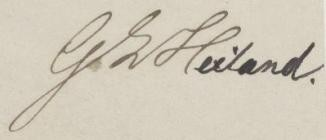 G E Heiland.